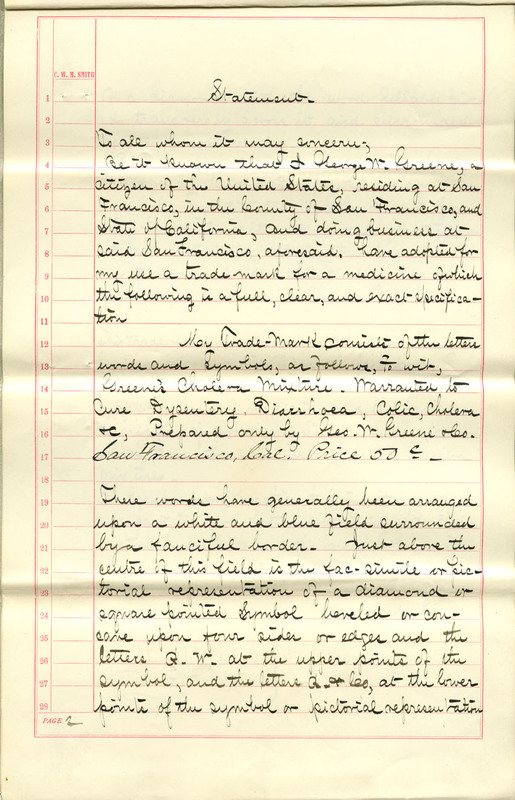 C. W. M. SMITH
1 Statement.
2
3 To all whom it may concern;
4 Be it known that I George W. Greene, a
5 citizen of the United States, residing at San
6 Francisco, in the County of San Francisco, and
7 State of California, and doing business at
8 said San Francisco, aforesaid, have adopted for
9 my use a trade mark for a medicine of which
10 the following is a full, clear, and exact specifica-
11 tion
12 My Trade-Mark consists of the letters
13 words and Symbols, as follows, to wit,
14 Greene's Cholera Mixture. Warranted to
15 Cure Dysentery, Diarrhoea, Colic, Cholera
16 &c, Prepared only by Geo. W. Greene & Co.
17 San Francisco, Cal. Price 50 c
18
19 These words have generally been arranged
20 upon a white and blue field surrounded
21 by a fanciful border. Just above the
22 centre of this field is the fac-simile or pic-
23 torial representation of a diamond or
24 square pointed Symbol beveled or con-
25 cave upon four sides or edges and the
26 letters G. W. at the upper points of the
27 symbol, and the letters G. & Co, at the lower
28 points of the symbol or pictorial representation
PAGE 2